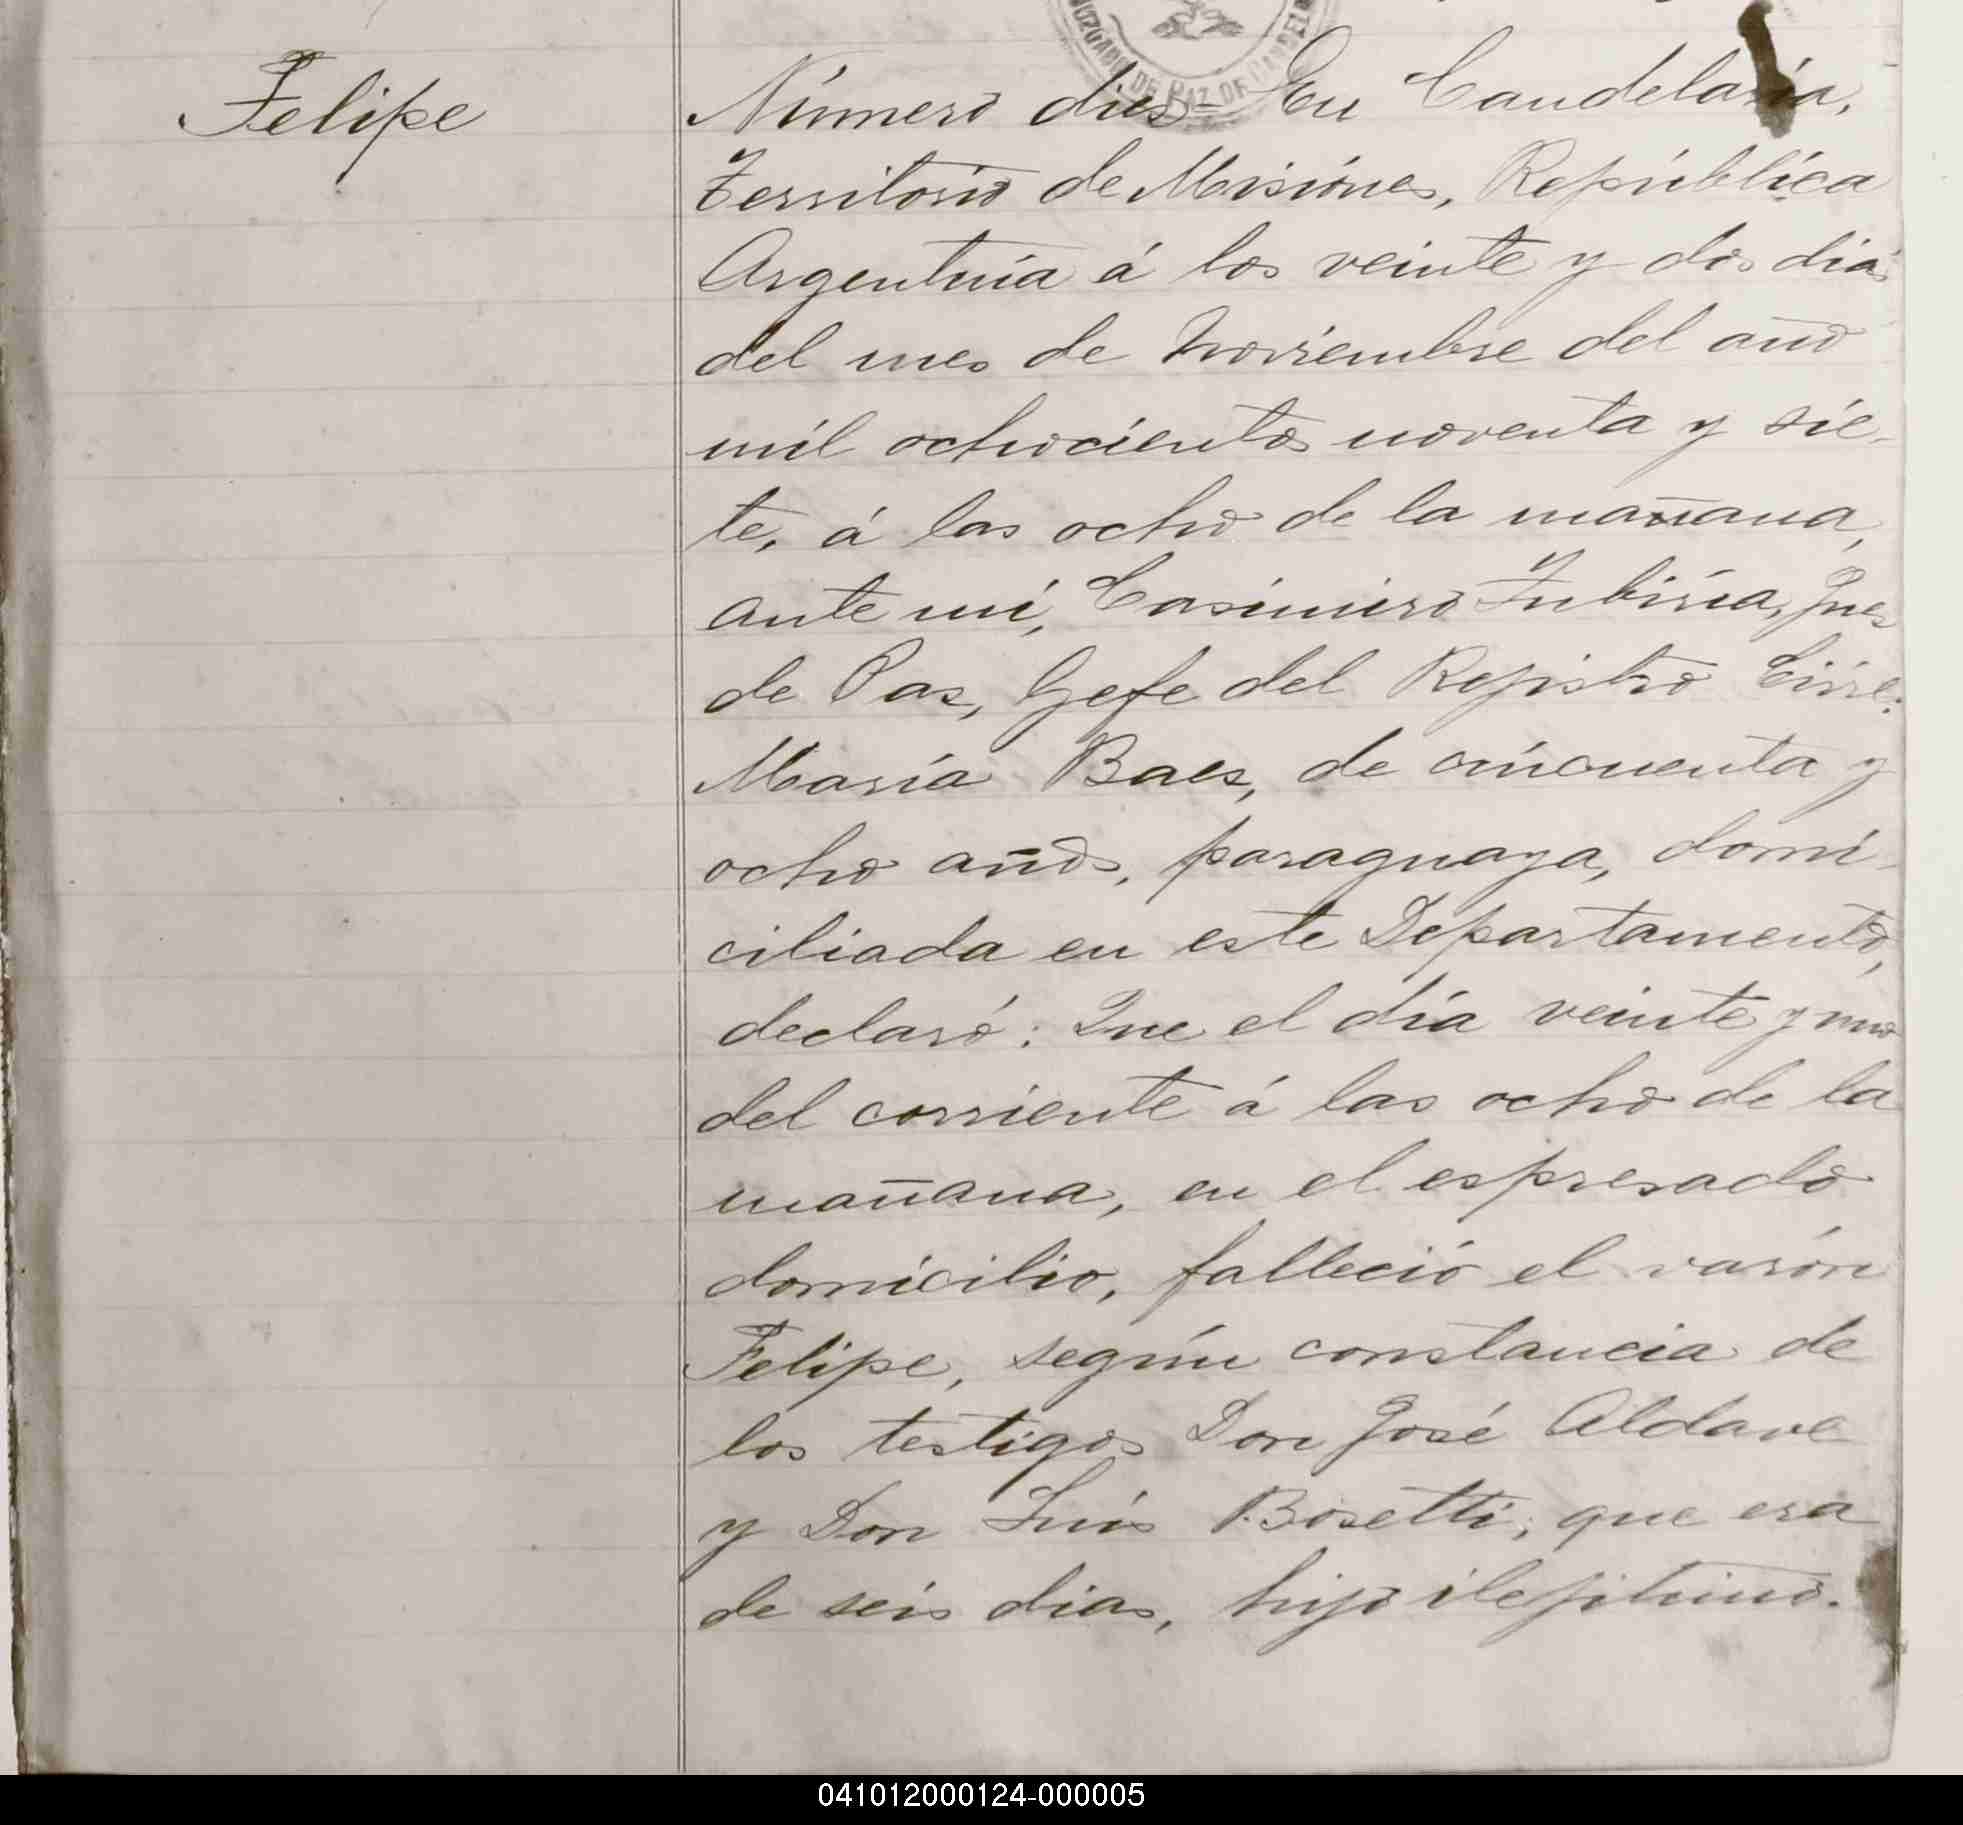 JUZGADO DE PAZ DE CANDEL
Felipe
Número dies= En Candelaria,
Territorio de Misiones, República
Argentina á los veinte y dos dias
del mes de Noviembre del año
mil ochocientos noventa y sie-
te, á las ocho de la mañana,
ante mi, Casimiro Zubiría, Jues
de Pas, Gefe del Registro Civil:
María Baes, de cincuenta y
ocho años, paraguaya, domi-
ciliada en este Departamento,
declaró: Que el día veinte y uno
del corriente á las ocho de la
mañana, en el espresado
domicilio, falleció el varón
Felipe, según constancia de
los testigos Don José Aldave
y Don Luis Bosetti; que era
de seis dias, hijo ilejitimo.
041012000124-000005